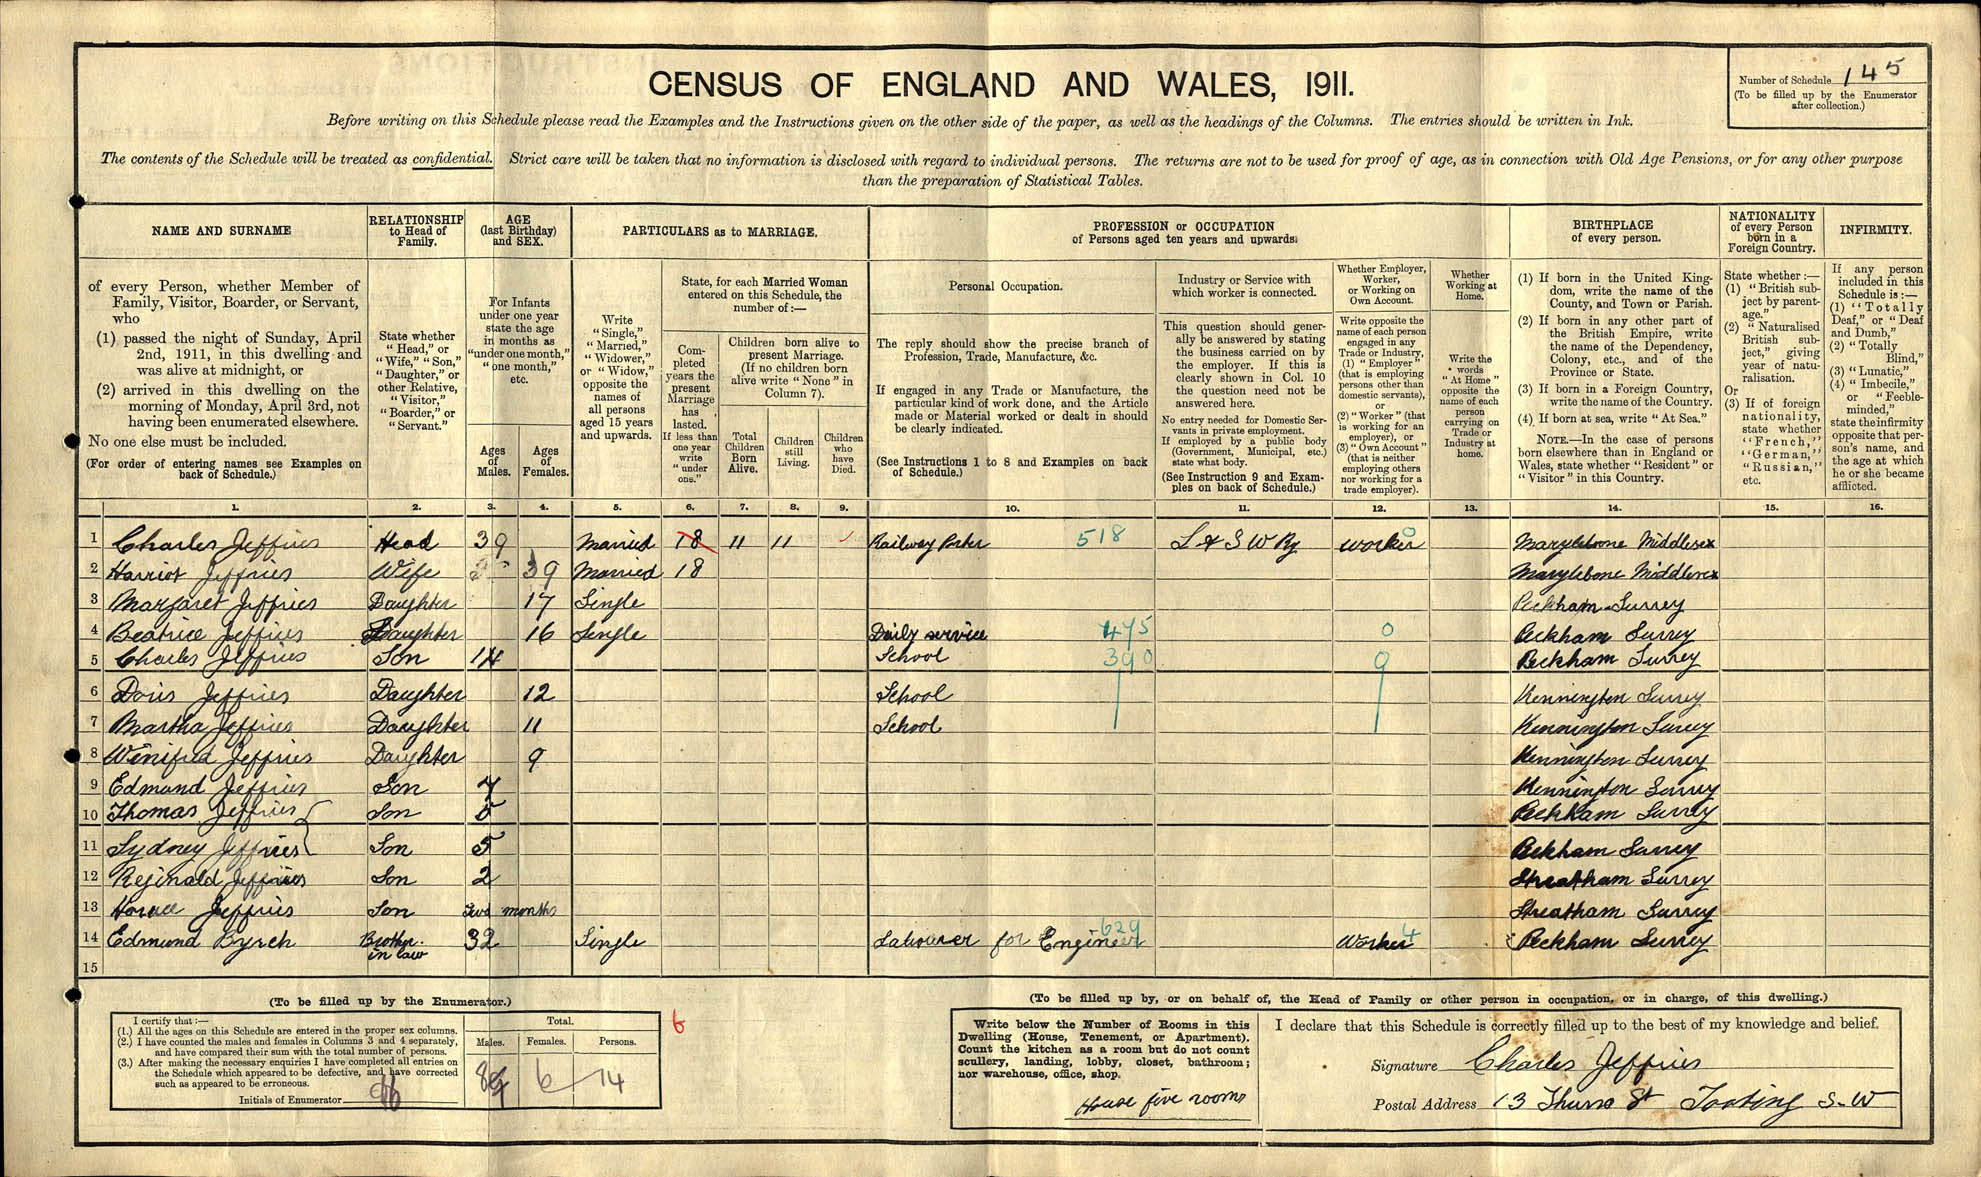 CENSUS OF ENGLAND AND WALES, 1911.
Number of Schedule 145
(To be filled up by the Enumerator
after collection.)
Before writing on this Schedule please read the Examples and the Instructions given on the other side of the paper, as well as the headings of the Columns. The entries should be written in Ink.
The contents of the Schedule will be treated as confidential. Strict care will be taken that no information is disclosed with regard to individual persons. The returns are not to be used for proof of age, as in connection with Old Age Pensions, or for any other purpose
than the preparation of Statistical Tables.
NAME AND SURNAME
of every Person, whether Member of
Family, Visitor, Boarder, or Servant,
who
(1) passed the night of Sunday, April
2nd, 1911, in this dwelling and
was alive at midnight, or
(2) arrived in this dwelling on the
morning of Monday, April 3rd, not
having been enumerated elsewhere.
No one else must be included.
(For order of entering names see Examples on
back of Schedule.)
RELATIONSHIP
to Head of
Family.
State whether
"Head," or
"Wife," "Son,"
"Daughter," or
other Relative,
"Visitor,"
"Boarder," or
"Servant."
AGE
(last Birthday)
and SEX.
For Infants
under one year
state the age
in months as
"under one month,"
"one month,"
etc.
Ages
of
Males.
Ages
of
Females.
PARTICULARS as to MARRIAGE.
Write
"Single,"
"Married,"
"Widower,"
or "Widow,"
opposite the
names of
all persons
aged 15 years
and upwards.
State, for each Married Woman
entered on this Schedule, the
number of:—
Com-
pleted
years the
present
Marriage
has
lasted.
If less than
one year
write
"under
one."
Children born alive to
present Marriage.
(If no children born
alive write "None" in
Column 7).
Total
Children
Born
Alive.
Children
still
Living.
Children
who
have
Died.
PROFESSION or OCCUPATION
of Persons aged ten years and upwards.
Personal Occupation.
The reply should show the precise branch of
Profession, Trade, Manufacture, &c.
If engaged in any Trade or Manufacture, the
particular kind of work done, and the Article
made or Material worked or dealt in should
be clearly indicated.
(See Instructions 1 to 8 and Examples on back
of Schedule.)
Industry or Service with
which worker is connected.
This question should gener-
ally be answered by stating
the business carried on by
the employer. If this is
clearly shown in Col. 10
the question need not be
answered here.
No entry needed for Domestic Ser-
vants in private employment.
If employed by a public body
(Government, Municipal, etc.)
state what body.
(See Instruction 9 and Exam-
ples on back of Schedule.)
Whether Employer,
Worker,
or Working on
Own Account.
Write opposite the
name of each person
engaged in any
Trade or Industry,
(1) "Employer"
(that is employing
persons other than
domestic servants),
or
(2) "Worker" (that
is working for an
employer), or
(3) "Own Account"
(that is neither
employing others
nor working for a
trade employer).
Whether
Working at
Home.
Write the
words
"At Home"
opposite the
name of each
person
carrying on
Trade or
Industry at
home.
BIRTHPLACE
of every person.
(1) If born in the United King-
dom, write the name of the
County, and Town or Parish.
(2) If born in any other part of
the British Empire, write
the name of the Dependency,
Colony, etc., and of the
Province or State.
(3) If born in a Foreign Country,
write the name of the Country.
(4) If born at sea, write "At Sea."
NOTE.—In the case of persons
born elsewhere than in England or
Wales, state whether "Resident" or
"Visitor" in this Country.
NATIONALITY
of every Person
born in a
Foreign Country.
State whether:—
(1) "British sub-
ject by parent-
age."
(2) "Naturalised
British sub-
ject," giving
year of natu-
ralisation.
Or
(3) If of foreign
nationality,
state whether
"French,"
"German,"
"Russian,"
etc.
INFIRMITY.
If any person
included in this
Schedule is:—
(1) "Totally
Deaf," or "Deaf
and Dumb,"
(2) "Totally
Blind,"
(3) "Lunatic,"
(4) "Imbecile,"
or "Feeble-
minded,"
state the infirmity
opposite that per-
son's name, and
the age at which
he or she became
afflicted.
1. 2. 3. 4. 5. 6. 7. 8. 9. 10. 11. 12. 13. 14. 15. 16.
1 Charles Jeffries Head 39 Married 18 11 11 Railway Porter 518 L & S W Ry Worker 0 Marylebone Middlesex
2 Harriot Jeffries Wife 39 Married 18 Marylebone Middlesex
3 Margaret Jeffries Daughter 17 Single Peckham Surrey
4 Beatrice Jeffries Daughter 16 Single Daily service 475 0 Peckham Surrey
5 Charles Jeffries Son 14 School 390 9 Peckham Surrey
6 Doris Jeffries Daughter 12 School Kennington Surrey
7 Martha Jeffries Daughter 11 School Kennington Surrey
8 Winifred Jeffries Daughter 9 Kennington Surrey
9 Edmund Jeffries Son 7 Kennington Surrey
10 Thomas Jeffries Son 5 Peckham Surrey
11 Sydney Jeffries Son 5 Peckham Surrey
12 Reginald Jeffries Son 2 Streatham Surrey
13 Horace Jeffries Son Two months Streatham Surrey
14 Edmund Byrch Brother in law 32 Single Labourer for Engineer 629 Worker 4 Peckham Surrey
15
(To be filled up by the Enumerator.)
I certify that:—
(1.) All the ages on this Schedule are entered in the proper sex columns.
(2.) I have counted the males and females in Columns 3 and 4 separately,
and have compared their sum with the total number of persons.
(3.) After making the necessary enquiries I have completed all entries on
the Schedule which appeared to be defective, and have corrected
such as appeared to be erroneous.
Initials of Enumerator
Total.
Males. Females. Persons.
8 6 14
6
(To be filled up by, or on behalf of, the Head of Family or other person in occupation, or in charge, of this dwelling.)
Write below the Number of Rooms in this
Dwelling (House, Tenement, or Apartment).
Count the kitchen as a room but do not count
scullery, landing, lobby, closet, bathroom;
nor warehouse, office, shop.
House five rooms
I declare that this Schedule is correctly filled up to the best of my knowledge and belief.
Signature Charles Jeffries
Postal Address 13 Thurso St Tooting S.W